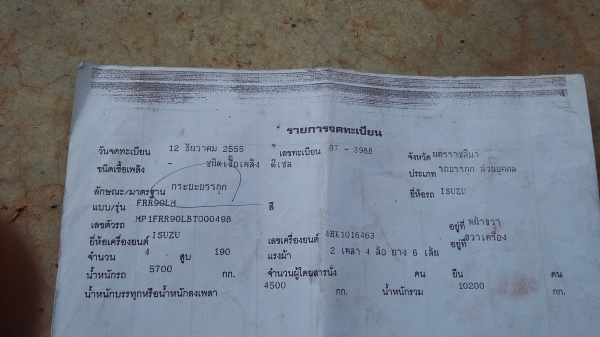 รายการจดทะเบียน
วันจดทะเบียน 12 ธันวาคม 2555 เลขทะเบียน 87 - 3988 จังหวัด นครราชสีมา
ชนิดเชื้อเพลิง - ชนิดเชื้อเพลิง ดีเซล ประเภท รถบรรทุก ส่วนบุคคล
ลักษณะ/มาตรฐาน กระบะบรรทุก ยี่ห้อรถ ISUZU
แบบ/รุ่น FRR90LM สี
เลขตัวรถ MP1FRR90LBT000498 อยู่ที่
ยี่ห้อเครื่องยนต์ ISUZU เลขเครื่องยนต์ 4HK1016463 อยู่ที่ ขวาเครื่อง
จำนวน 4 สูบ 190 แรงม้า 2 เพลา 4 ล้อ ยาง 6 เส้น
น้ำหนักรถ 5700 กก. จำนวนผู้โดยสารนั่ง คน ยืน คน
น้ำหนักบรรทุกหรือน้ำหนักลงเพลา 4500 กก. น้ำหนักรวม 10200 กก.